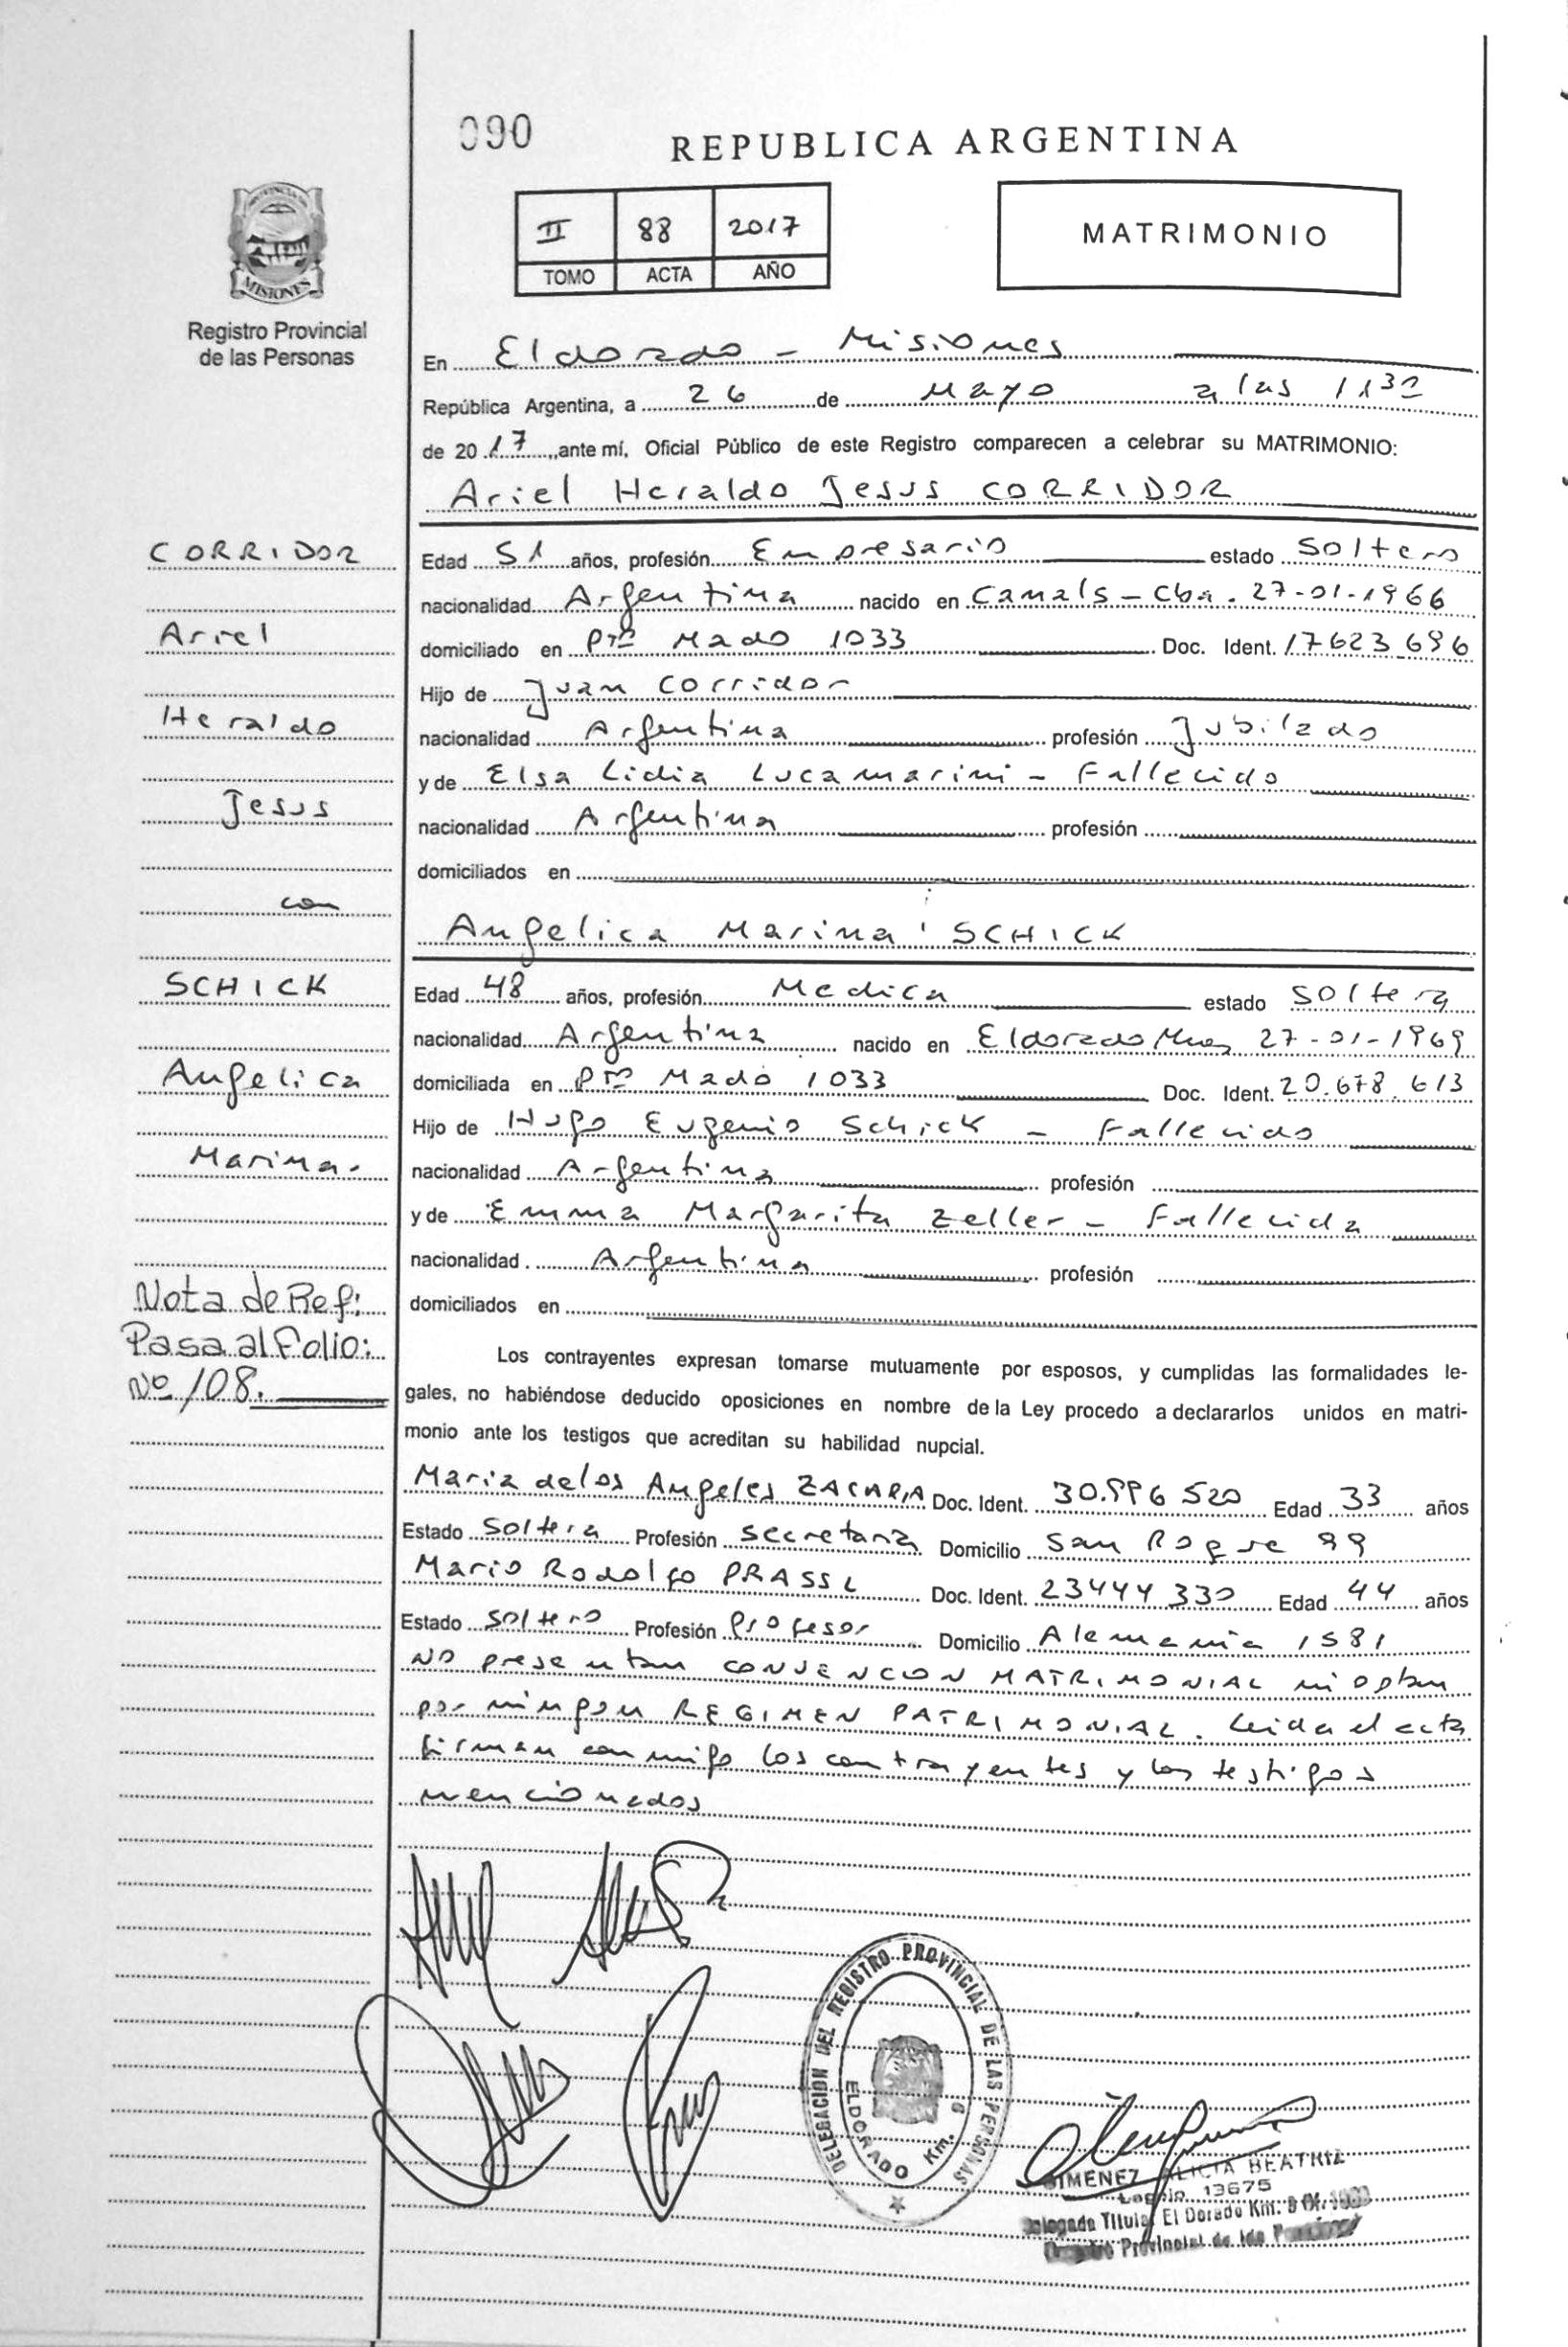 090
REPUBLICA ARGENTINA
II 88 2017
TOMO ACTA AÑO
MATRIMONIO
PROVINCIA DE
MISIONES
Registro Provincial
de las Personas
En Eldorado - Misiones
República Argentina, a 26 de Mayo a las 11 30
de 2017, ante mí, Oficial Público de este Registro comparecen a celebrar su MATRIMONIO:
Ariel Heraldo Jesus CORRIDOR
CORRIDOR
Ariel
Heraldo
Jesus
con
SCHICK
Angelica
Marina.
Nota de Ref:
Pasa al Folio:
Nº 108.
Edad 51 años, profesión Empresario estado Soltero
nacionalidad Argentina nacido en Canals - Cba. 27-01-1966
domiciliado en Pto Mado 1033 Doc. Ident. 17623696
Hijo de Juan Corridor
nacionalidad Argentina profesión Jubilado
y de Elsa Lidia Lucamarini - Fallecido
nacionalidad Argentina profesión
domiciliados en
Angelica Marina SCHICK
Edad 48 años, profesión Medica estado Soltera
nacionalidad Argentina nacido en Eldorado Mnes 27-01-1969
domiciliada en Pto Mado 1033 Doc. Ident. 20.678.613
Hijo de Hugo Eugenio Schick - Fallecido
nacionalidad Argentina profesión
y de Emma Margarita Zeller - Fallecida
nacionalidad Argentina profesión
domiciliados en
Los contrayentes expresan tomarse mutuamente por esposos, y cumplidas las formalidades le-
gales, no habiéndose deducido oposiciones en nombre de la Ley procedo a declararlos unidos en matri-
monio ante los testigos que acreditan su habilidad nupcial.
Maria de los Angeles ZACARIA Doc. Ident. 30.996520 Edad 33 años
Estado Soltera Profesión Secretaria Domicilio San Roque 99
Mario Rodolfo PRASSL Doc. Ident. 23444330 Edad 44 años
Estado Soltero Profesión Profesor Domicilio Alemania 1581
No presentan CONVENCION MATRIMONIAL ni optan
por ningun REGIMEN PATRIMONIAL. Leida el acta
firman conmigo los contrayentes y los testigos
mencionados
DELEGACION DEL REGISTRO PROVINCIAL DE LAS PERSONAS
ELDORADO Km. 9
GIMENEZ ALICIA BEATRIZ
Legajo 13675
Delegada Titular El Dorado Km. 9
Registro Provincial de las Personas